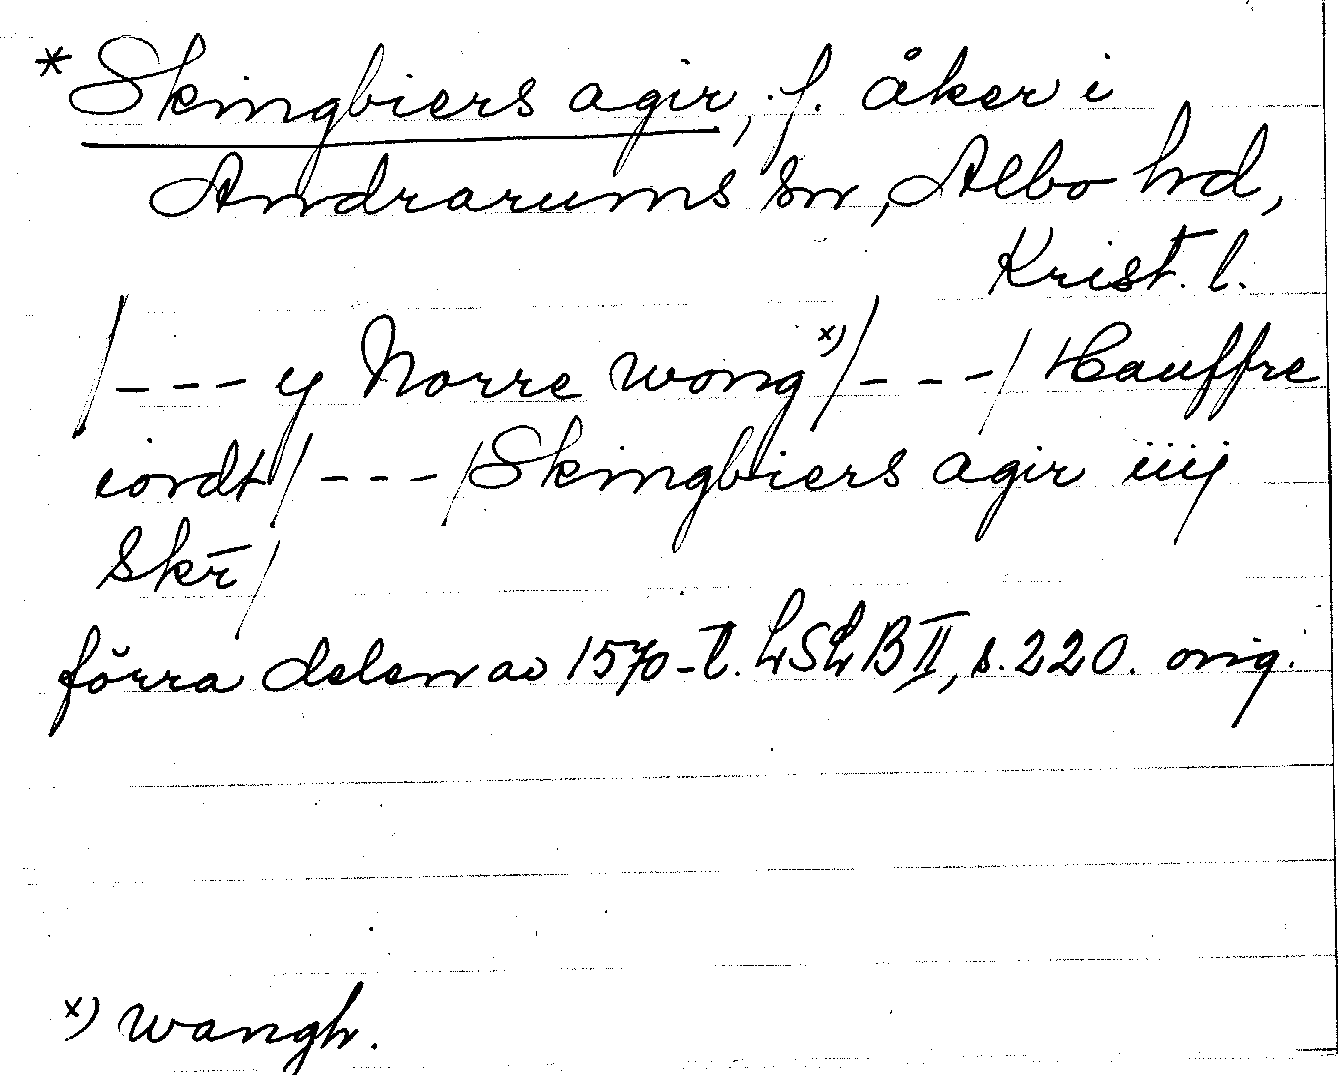 * Skingbiers agir, f. åker i
Andrarums sn, Albo hd,
Krist. l.
/--- y Norre wong x)/---/ Hauffre
iordt/---/Skingbiers agir iiij
Skr̄/
förra delen av 1570-t. LSLB II, s. 220. orig.
x) wangh.